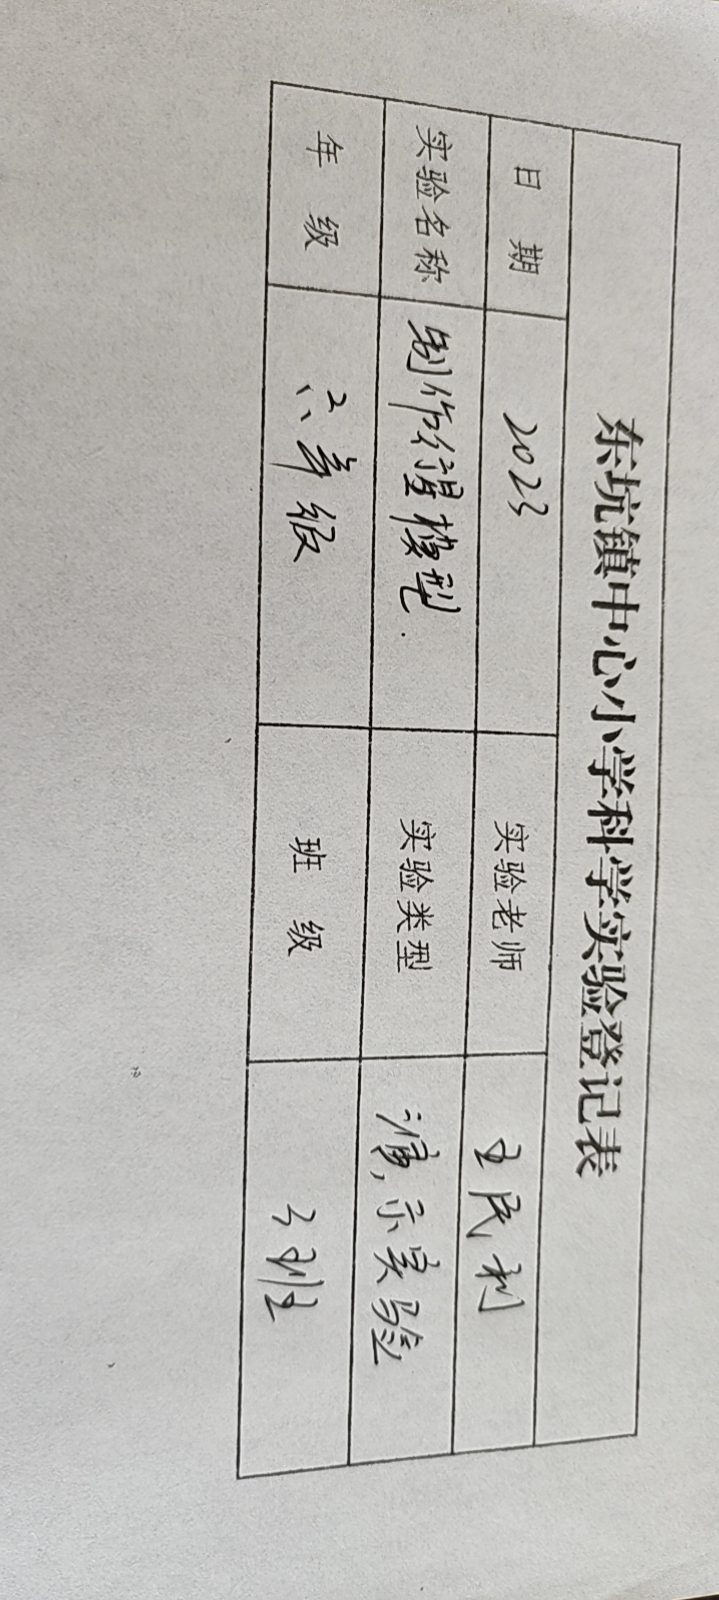 东坑镇中心小学科学实验登记表
日 期 2023 实验老师 王民利
实验名称 制作行星模型. 实验类型 演示实验
年 级 六年级 班 级 3班